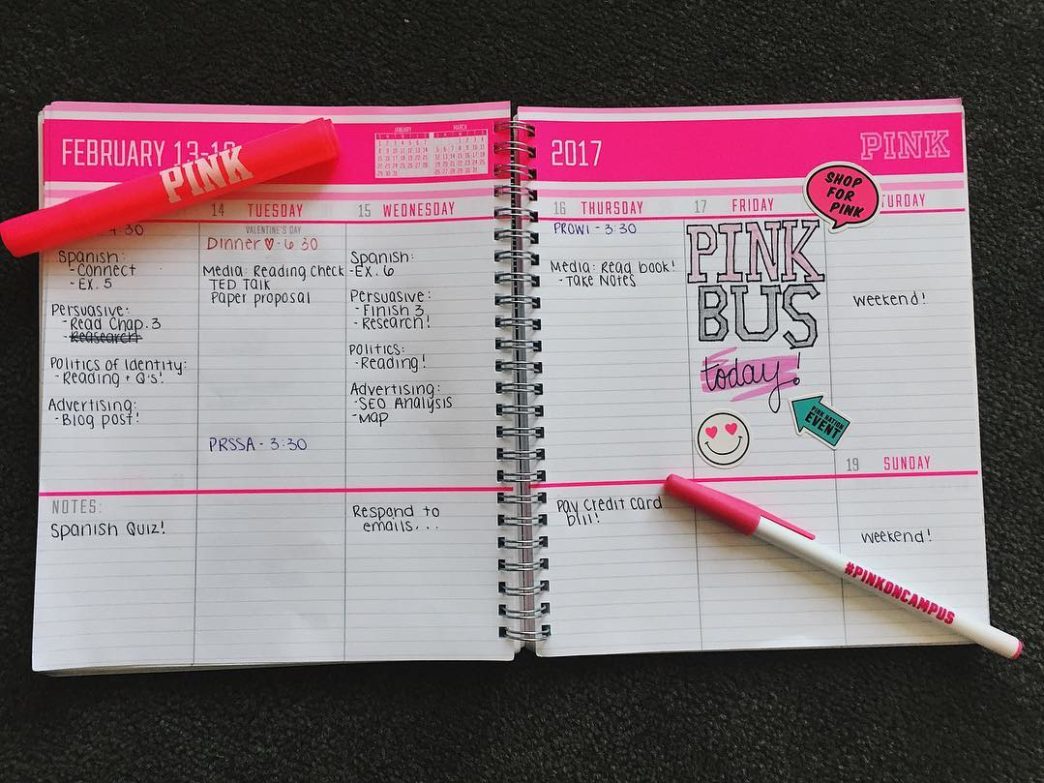 FEBRUARY 13-19
2017
PINK
PINK
JANUARY
MARCH
14 TUESDAY
15 WEDNESDAY
16 THURSDAY
17 FRIDAY
SHOP
FOR
PINK
30
Spanish:
- Connect
- EX. 5
Persuasive:
- Read Chap. 3
- Reasearch
Politics of Identity:
- Reading + Q's!
Advertising:
- Blog post!
NOTES:
Spanish Quiz!
VALENTINE'S DAY
Dinner ♡ - 6 30
Media: Reading Check
TED Talk
Paper proposal
PRSSA - 3:30
Spanish:
- EX. 6
Persuasive:
- Finish 3
- Research!
Politics:
- Reading!
Advertising:
- SEO Analysis
- Map
Respond to
emails...
PROWI - 3:30
Media: Read book!
- Take Notes
Pay Credit Card
bill!
PINK
BUS
today!
PINK NATION
EVENT
Weekend!
19 SUNDAY
Weekend!
#PINKONCAMPUS